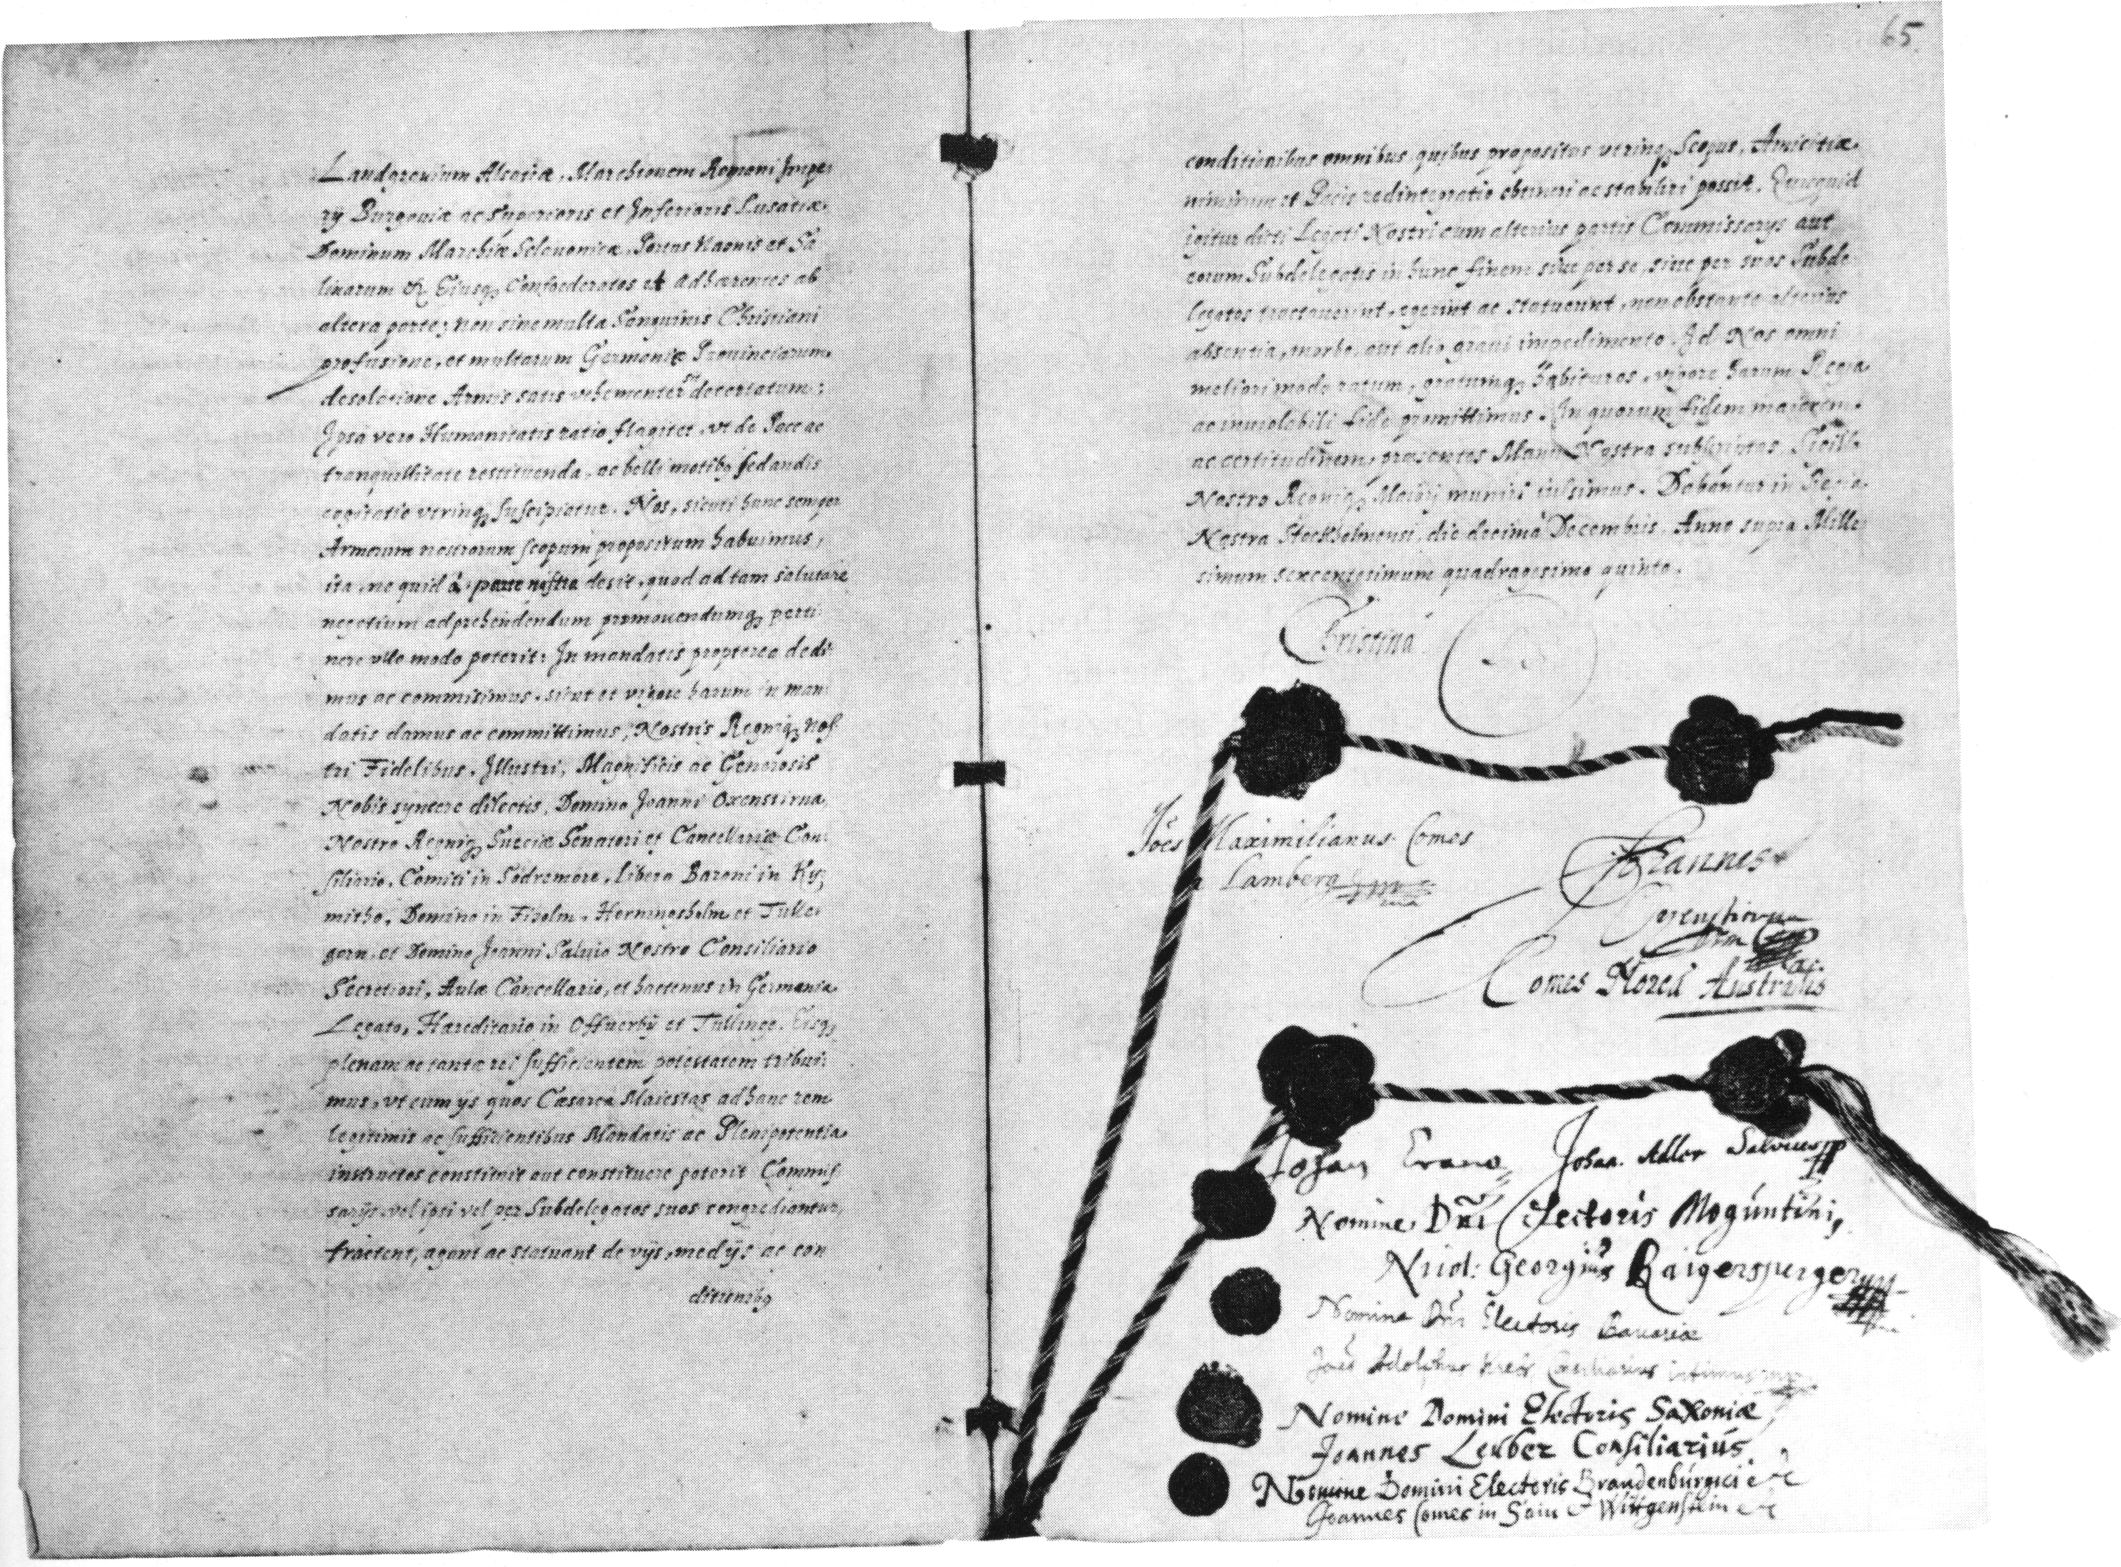 Landgravium Alsatiæ, Marchionem Romani Impe-
rij Burgoviæ ac Superioris et Inferioris Lusatiæ,
Dominum Marchiæ Sclavonicæ, Portus Naonis et Sa-
linarum &c Eiusq; Confoederatos et Adhærentes ab
altera parte; non sine multa Sanguinis Christiani
profusione, et multarum Germaniæ Provinciarum
desolatione Armis satis vehementer decertatum;
Ipsa vero Humanitatis ratio flagitet, vt de Pace ac
tranquillitate restituenda, ac belli motibq sedandis
cogitatio vtrinq; suscipiatur. Nos, sicuti hunc semper
Armorum nostrorum scopum propositum habuimus,
ita, ne quid à parte nostra desit, quod ad tam salutare
negotium adprehendendum promovendumq; perti-
nere vllo modo poterit; In mandatis propterea dedi-
mus ac commisimus, sicut et vigore harum in man-
datis damus ac committimus, Nostris Regniq; nos-
tri Fidelibus, Illustri, Magnificis ac Generosis
Nobis syncere dilectis, Domino Joanni Oxenstirna
Nostro Regniq; Sueciæ Senatori et Cancellariæ Con-
siliario, Comiti in Södremore, Libero Baroni in Ky-
mitho, Domino in Fiholm, Herningsholm et Tulle-
garn, et Domino Joanni Salvio Nostro Consiliario
Secretiori, Aulæ Cancellario, et hactenus in Germania
Legato, Hæreditario in Offverby et Tullinge. Eisq;
plenam ac tantæ rei sufficientem potestatem tribui-
mus, vt cum ijs quos Cæsarea Maiestas ad hanc rem
legitimis ac sufficientibus Mandatis ac Plenipotentia
instructos constituit aut constituere poterit Commis-
sarijs, vel ipsi vel per Subdelegatos suos congrediantur,
tractent, agant ac statuant de vijs, medijs ac con-
ditionibq
65
conditionibus omnibus, quibus propositus vtrinq; Scopus, Amicitiæ
nimirum et Pacis redintegratio obtineri ac stabiliri possit. Quicquid
igitur dicti Legati Nostri cum alterius partis Commissarijs aut
eorum Subdelegatis in hunc finem sive per se, sive per suos Subde-
legatos tractaverint, egerint ac statuerint, non obstante alterius
absentia, morbo, aut alio gravi impedimento. Id Nos omni
meliori modo ratum, gratumq; habituros, vigore harum Regia
ac inviolabili fide promittimus. In quorum fidem maiorem
ac certitudinem, præsentes Manu Nostra subscriptas, Sigill
Nostro Regniq; Maiori muniri iussimus. Dabantur in Regia
Nostra Stockholmensi, die decima Decembris, Anno supra Mille-
simum sexcentesimum quadragesimo quinto.
Christina
Joēs Maximilianus Comes
a Lamberg
Johannes
Comes
Johan Adler Salvius
Nomine Dni Electoris Moguntini,
Georgius Raigersperger
Nomine Dni Electoris Bavariæ
Joēs Adolphus Krebs Consiliarius intimus
Nomine Domini Electoris Saxoniæ
Joannes Leuber Consiliarius
Nomine Domini Electoris Brandenburgici &c
Joannes Comes in Sain & Wittgenstein &c